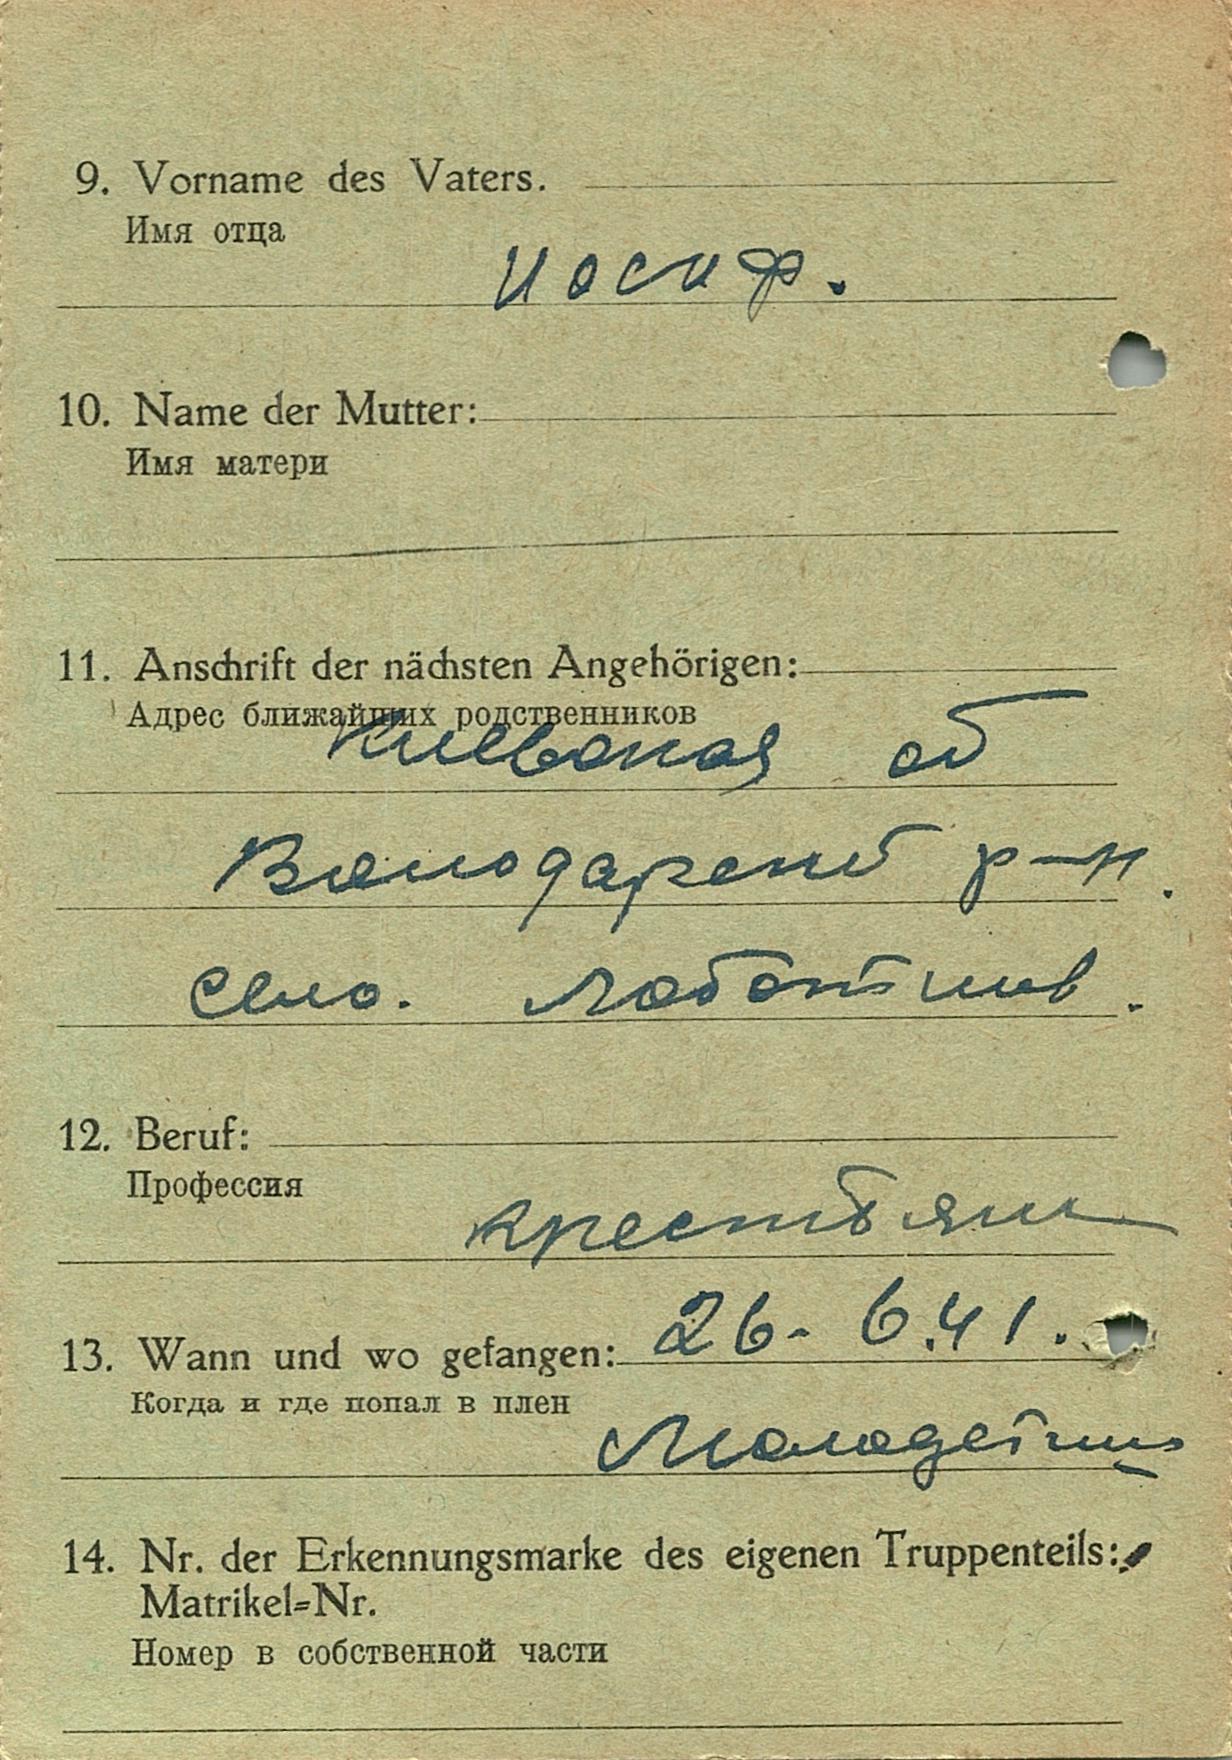 9. Vorname des Vaters.
Имя отца
Иосиф.
10. Name der Mutter:
Имя матери
11. Anschrift der nächsten Angehörigen:
Адрес ближайших родственников
Киевская об
Володарский р-н.
село.
12. Beruf:
Профессия
крестьянин
13. Wann und wo gefangen: 26. 6.41.
Когда и где попал в плен
Молодечно
14. Nr. der Erkennungsmarke des eigenen Truppenteils:
Matrikel-Nr.
Номер в собственной части